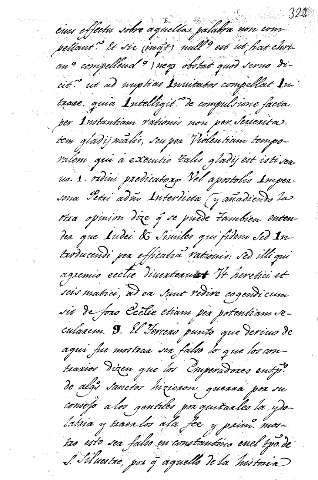 322
cuius effectu sobre aquellas palabra non com
pellantr. Et sic (inqt) nullus est ut has chri
ano compellend (neqs obstat quod servo di
citr. ut ad nuptias Invitatos compellat In
trare. quia Intelligitr. de compulsione facta
per Instantiam rationis non per Severita
tem gladij malis, seu per Violentiam tempo
ralem qui à executio talis gladij est isti ser
uo. i. ordini predicatorum Vel apostolis In per
sona Petri adim Interdicta (y añadiendo la
otra opinion dize q se puede tambien enten
der que Iudei & Similes qui fidem sed In
troducendi per efficatiam rationis. sed illi qui
agremio ecclie diverterunt Vt heretici et
scismatici, ad ea sunt redire cogendi cum
sit de foro Ecclie etiam per potentiam se
cularem. 9. El Tercero punto que devimos de
aqui fue mostrar ser falso lo que los con
trarios dizen que los Emperadores en tpo.
de algs Sanctos hizieron guerra por su
consejo a los gentiles por quitarles la ydo
latria y traerlos ala fee y primo. mos
tro esto ser falso en constantino en el tpo. de
S. Silvestro, por q aquello de la historia